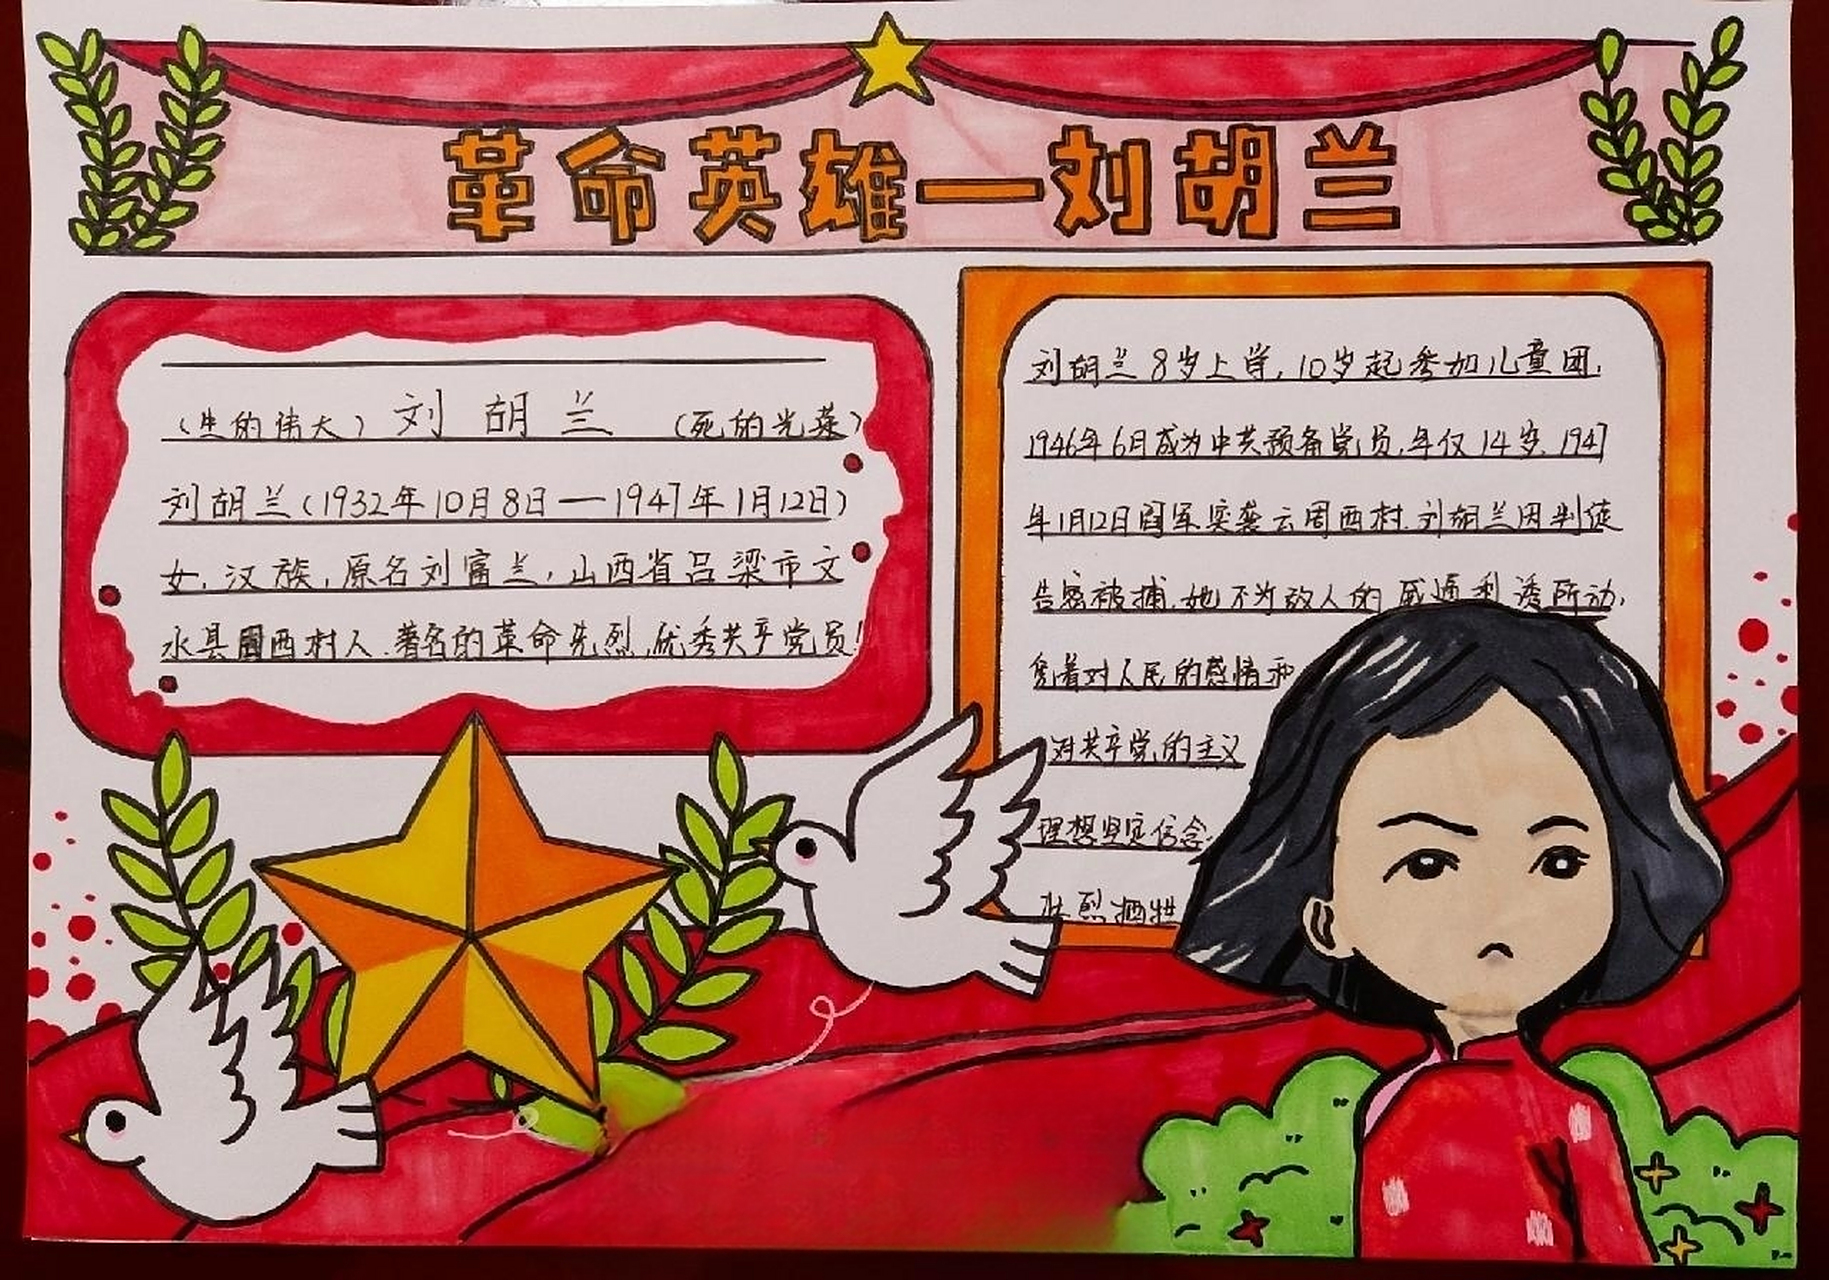 革命英雄—刘胡兰
(生的伟大) 刘胡兰 (死的光荣)
刘胡兰(1932年10月8日—1947年1月12日)
女,汉族,原名刘富兰,山西省吕梁市文
水县周西村人.著名的革命先烈,优秀共产党员!
刘胡兰8岁上学,10岁起参加儿童团,
1946年6月成为中共预备党员,年仅14岁.1947
年1月12日阎军突袭云周西村.刘胡兰因判徒
告密被捕.她不为敌人的威逼利诱所动,
凭着对人民的感情和
对共产党的主义
理想坚定信念
壮烈牺牲